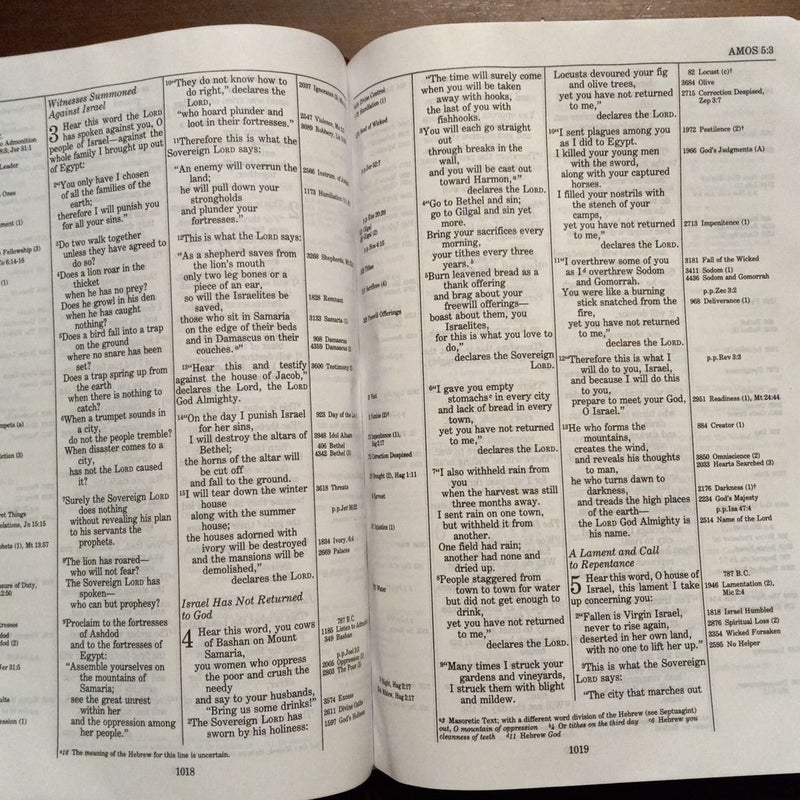 AMOS 5:3
Witnesses Summoned
Against Israel
3 Hear this word the LORD
has spoken against you, O
people of Israel—against the
whole family I brought up out
of Egypt:
2"You only have I chosen
of all the families of the
earth;
therefore I will punish you
for all your sins."
3Do two walk together
unless they have agreed to
do so?
4Does a lion roar in the
thicket
when he has no prey?
Does he growl in his den
when he has caught
nothing?
5Does a bird fall into a trap
on the ground
where no snare has been
set?
Does a trap spring up from
the earth
when there is nothing to
catch?
6When a trumpet sounds in
a city,
do not the people tremble?
When disaster comes to a
city,
has not the LORD caused
it?
7Surely the Sovereign LORD
does nothing
without revealing his plan
to his servants the
prophets.
8The lion has roared—
who will not fear?
The Sovereign LORD has
spoken—
who can but prophesy?
9Proclaim to the fortresses
of Ashdod
and to the fortresses of
Egypt:
"Assemble yourselves on
the mountains of
Samaria;
see the great unrest
within her
and the oppression among
her people."
10"They do not know how to
do right," declares the
LORD,
"who hoard plunder and
loot in their fortresses."
11Therefore this is what the
Sovereign LORD says:
"An enemy will overrun the
land;
he will pull down your
strongholds
and plunder your
fortresses."
12This is what the LORD says:
"As a shepherd saves from
the lion's mouth
only two leg bones or a
piece of an ear,
so will the Israelites be
saved,
those who sit in Samaria
on the edge of their beds
and in Damascus on their
couches.a"
13"Hear this and testify
against the house of Jacob,"
declares the Lord, the LORD
God Almighty.
14"On the day I punish Israel
for her sins,
I will destroy the altars of
Bethel;
the horns of the altar will
be cut off
and fall to the ground.
15I will tear down the winter
house
along with the summer
house;
the houses adorned with
ivory will be destroyed
and the mansions will be
demolished,"
declares the LORD.
Israel Has Not Returned
to God
4 Hear this word, you cows
of Bashan on Mount
Samaria,
you women who oppress
the poor and crush the
needy
and say to your husbands,
"Bring us some drinks!"
2The Sovereign LORD has
sworn by his holiness:
2547 Violence
3089 Robbery
1173 Humiliation
3268 Shepherds
1828 Remnant
3133 Samaria
908 Damascus
4359 Damascus
3600 Testimony
923 Day of the
3948 Idol Altars
406 Bethel
4342 Bethel
3618 Threats
1834 Ivory
2669 Palaces
787 B.C.
349 Bashan
3574 Excess
2611 Divine
1597 God's Holiness
a12 The meaning of the Hebrew for this line is uncertain.
1018
"The time will surely come
when you will be taken
away with hooks,
the last of you with
fishhooks.
3You will each go straight
out
through breaks in the
wall,
and you will be cast out
toward Harmon,a"
declares the LORD.
4"Go to Bethel and sin;
go to Gilgal and sin yet
more.
Bring your sacrifices every
morning,
your tithes every three
years.b
5Burn leavened bread as a
thank offering
and brag about your
freewill offerings—
boast about them, you
Israelites,
for this is what you love to
do,"
declares the Sovereign
LORD.
6"I gave you empty
stomachsc in every city
and lack of bread in every
town,
yet you have not returned
to me,"
declares the LORD.
7"I also withheld rain from
you
when the harvest was still
three months away.
I sent rain on one town,
but withheld it from
another.
One field had rain;
another had none and
dried up.
8People staggered from
town to town for water
but did not get enough to
drink,
yet you have not returned
to me,"
declares the LORD.
9"Many times I struck your
gardens and vineyards,
I struck them with blight
and mildew.
Locusts devoured your fig
and olive trees,
yet you have not returned
to me,"
declares the LORD.
10"I sent plagues among you
as I did to Egypt.
I killed your young men
with the sword,
along with your captured
horses.
I filled your nostrils with
the stench of your
camps,
yet you have not returned
to me,"
declares the LORD.
11"I overthrew some of you
as Id overthrew Sodom
and Gomorrah.
You were like a burning
stick snatched from the
fire,
yet you have not returned
to me,"
declares the LORD.
12"Therefore this is what I
will do to you, Israel,
and because I will do this
to you,
prepare to meet your God,
O Israel."
13He who forms the
mountains,
creates the wind,
and reveals his thoughts
to man,
he who turns dawn to
darkness,
and treads the high places
of the earth—
the LORD God Almighty is
his name.
A Lament and Call
to Repentance
5 Hear this word, O house of
Israel, this lament I take
up concerning you:
2"Fallen is Virgin Israel,
never to rise again,
deserted in her own land,
with no one to lift her up."
3This is what the Sovereign
LORD says:
"The city that marches out
82 Locust (c)†
3684 Olive
2715 Correction Despised,
Zep 3:7
1972 Pestilence (2)†
1966 God's Judgments (A)
2713 Impenitence (1)
3181 Fall of the Wicked
3411 Sodom (1)
4436 Sodom and Gomorrah
p.p.Zec 3:2
968 Deliverance (1)
p.p.Rev 3:3
2951 Readiness (1), Mt 24:44
884 Creator (1)
3850 Omniscience (2)
2033 Hearts Searched (3)
2176 Darkness (1)†
2234 God's Majesty
p.p.Isa 47:4
2514 Name of the Lord
787 B.C.
1946 Lamentation (2),
Mic 2:4
1818 Israel Humbled
2876 Spiritual Loss (2)
3354 Wicked Forsaken
2595 No Helper
a3 Masoretic Text; with a different word division of the Hebrew (see Septuagint)
out, O mountain of oppression b4 Or tithes on the third day c6 Hebrew you
cleanness of teeth d11 Hebrew God
1019